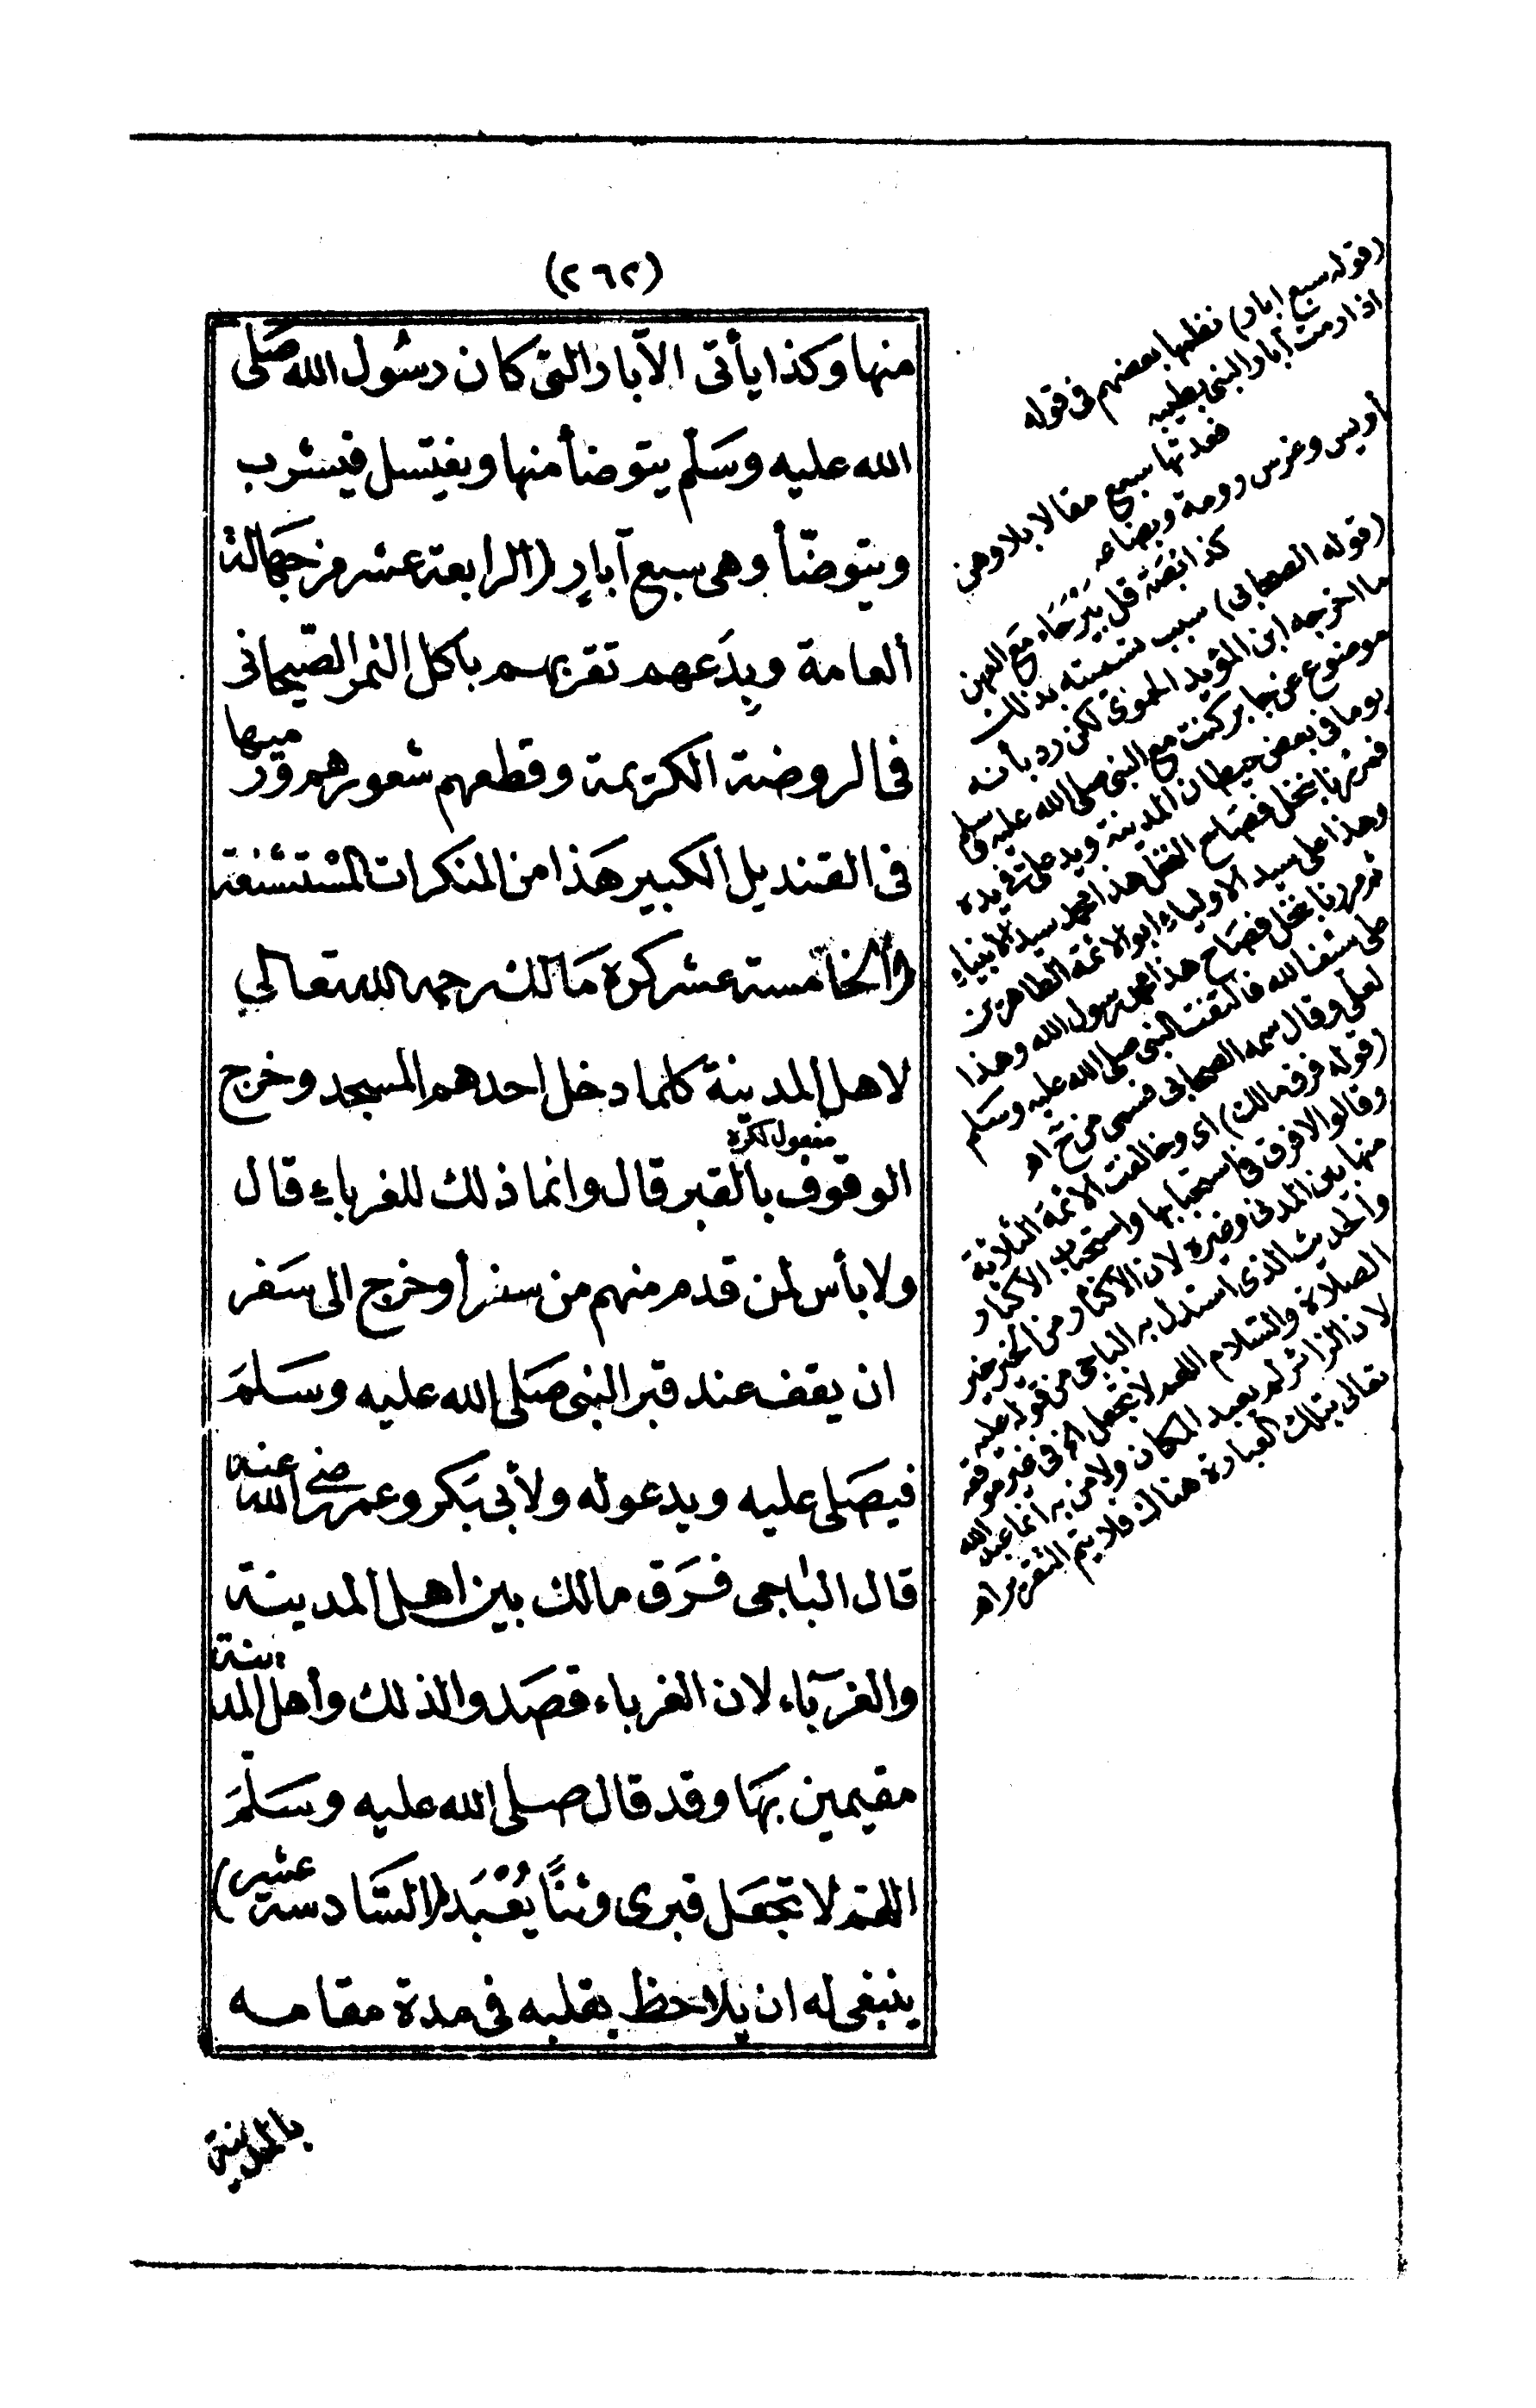 (٢٦٢)
منها وكذا يأتى الآبار التى كان رسول الله صلى
الله عليه وسلم يتوضأ منها ويغتسل فيشرب
ويتوضأ وهى سبع آبار (الرابعة عشر من جهالة
العامة وبدعهم تقربهم باكل التمر الصيحانى
فى الروضة الكريمة وقطعهم شعورهم ورميها
فى القنديل الكبير هذا من المنكرات المستشنعة
(والخامسة عشر كره مالك رحمه الله تعالى
لاهل المدينة كلما دخل احدهم المسجد وخرج
مفعول لكره
الوقوف بالقبر قال وانما ذلك للغرباء قال
ولا بأس لمن قدم منهم من سفر أو خرج الى سفر
ان يقف عند قبر النبى صلى الله عليه وسلم
فيصلى عليه ويدعو له ولأبى بكر وعمر رضى الله عنه
قال الباجى فرق مالك بين اهل المدينة
والغرباء لان الغرباء قصدوا لذلك وأهل المدينة
مقيمين بها وقد قال صلى الله عليه وسلم
اللهم لا تجعل قبرى وثنا يُعْبَد (السادسة عشر)
ينبغى له ان يلاحظ بقلبه فى مدة مقامه
بالمدينة
(قوله سبع ابار) نظمها بعضهم فى قوله
اذا رمت آبار النبى بطيبه
فعدتها سبع مقالا بلا وهن
أريس وغرس رومة وبضاعه
كذا بُصّة قل بَيْرحَاء مع العهن
(قوله الصيحانى) سبب تسميته بذلك
ما اخرجه ابن المؤيد الحموى لكن رد بأنه
موضوع عن جابر كنت مع النبى صلى الله عليه وسلم
يوما فى بعض حيطان المدينة ويد على فى يده
فمررنا بنخل فصاح النخل هذا محمد سيد الانبياء
وهذا على سيد الاولياء ابو الائمة الطاهرين
ثم مررنا بنخل فصاح هذا محمد رسول الله وهذا
على سيف الله فالتفت النبى صلى الله عليه وسلم
لعلى وقال سمه الصيحانى فسمى من ثم اه
(قوله فرق مالك) اى وخالفت الائمة الثلاثة
وقالوا لا فرق فى استحبابها واستحباب الاكثار
منها بين المدنى وغيره لان الاكثار من الخير خير
والحديث الذى استدل به الباجى من قوله عليه
الصلاة والسلام اللهم لا تجعل الخ فى غير موقعه
لان الزائر لم يعبد المكان ولا من به انما عبد الله
تعالى بتلك العبادة هناك فلا يتم التقرير اه